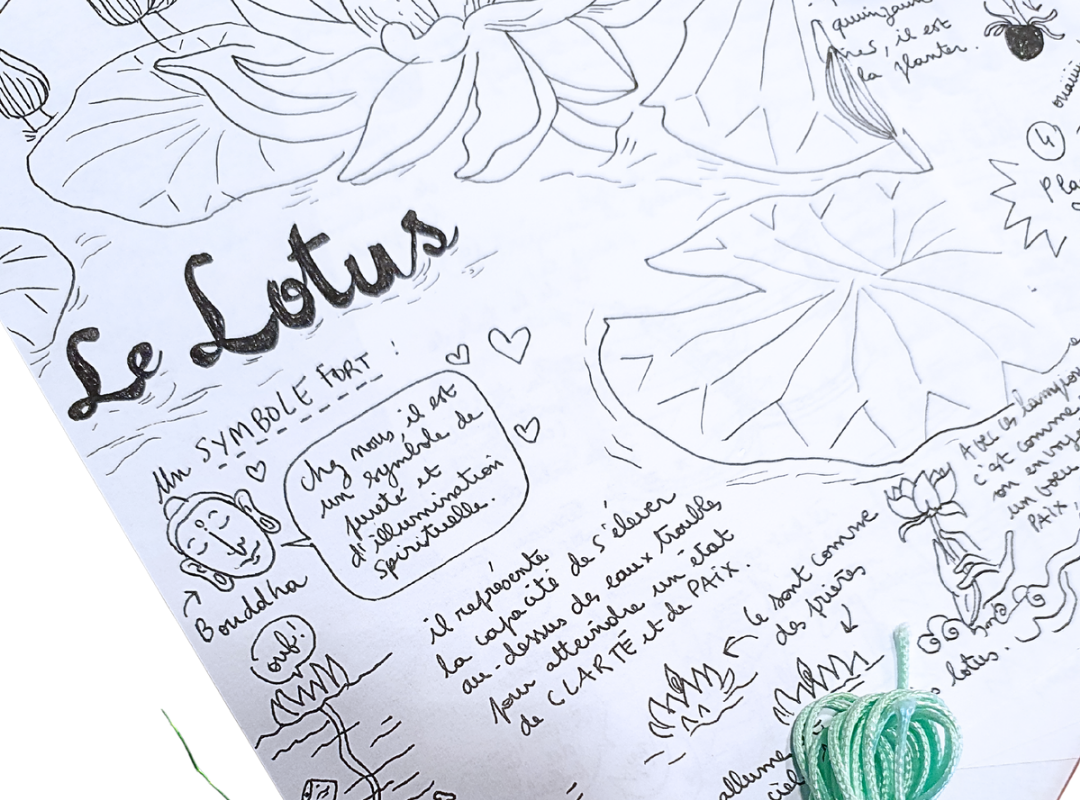 quinzaine
il est
la planter.
4
Le Lotus
Un SYMBOLE FORT :
chez nous, il est
un symbole de
pureté et
d'illumination
spirituelle.
Bouddha
ouf!
il représente
la capacité de s'élever
au-dessus des eaux troubles
pour atteindre un état
de CLARTÉ et de PAIX.
Ce sont comme
des prières
Avec ces lampions
c'est comme
on envoy
un voeu
PAIX,
lotus.
allume
ciel